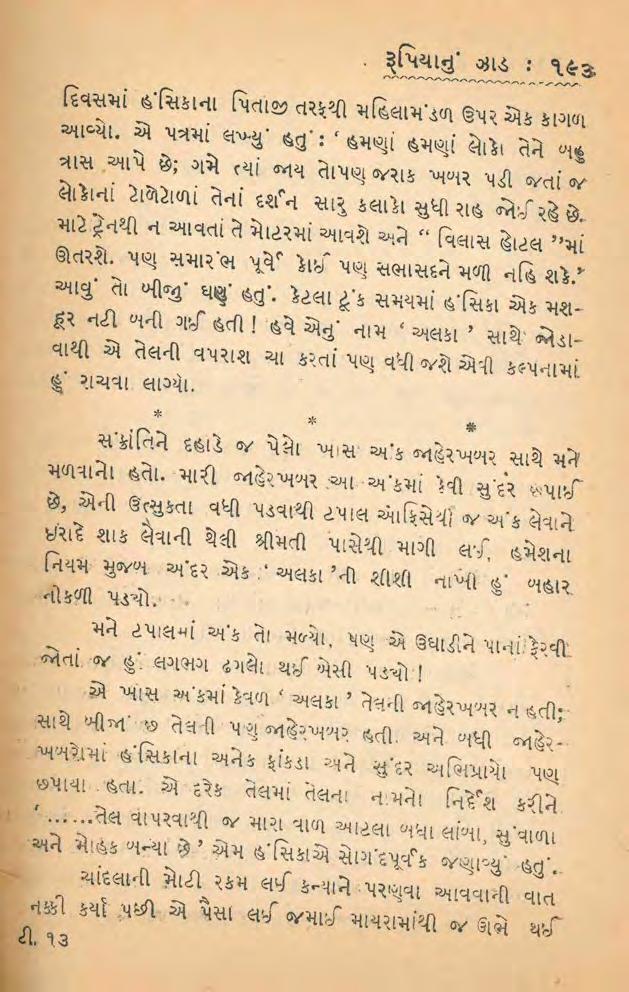 રૂપિયાનું ઝાડ : ૧૯૩
દિવસમાં હંસિકાના પિતાજી તરફથી મહિલામંડળ ઉપર એક કાગળ
આવ્યો. એ પત્રમાં લખ્યું હતું : ‘ હમણાં હમણાં લોકો તેને બહુ
ત્રાસ આપે છે; ગમે ત્યાં જાય તોપણ જરાક ખબર પડી જતાં જ
લોકોનાં ટોળેટોળાં તેનાં દર્શન સારુ કલાકો સુધી રાહ જોઈ રહે છે.
માટે ટ્રેનથી ન આવતાં તે મોટરમાં આવશે અને “ વિલાસ હોટલ ”માં
ઊતરશે. પણ સમારંભ પૂર્વે કોઈ પણ સભાસદને મળી નહિ શકે.’
આવું તો બીજું ઘણું હતું. કેટલા ટૂંક સમયમાં હંસિકા એક મશ-
હૂર નટી બની ગઈ હતી ! હવે એનું નામ ‘ અલકા ’ સાથે જોડા-
વાથી એ તેલની વપરાશ ચા કરતાં પણ વધી જશે એવી કલ્પનામાં
હું રાચવા લાગ્યો.
* * *
સંક્રાંતિને દહાડે જ પેલો ખાસ અંક જાહેરખબર સાથે મને
મળવાનો હતો. મારી જાહેરખબર આ અંકમાં કેવી સુંદર છપાઈ
છે, એની ઉત્સુકતા વધી પડવાથી ટપાલ ઑફિસેથી જ અંક લેવાને
ઇરાદે શાક લેવાની થેલી શ્રીમતી પાસેથી માગી લઈ, હમેશના
નિયમ મુજબ અંદર એક ‘ અલકા ’ની શીશી નાખી હું બહાર
નીકળી પડ્યો.
મને ટપાલમાં અંક તો મળ્યો, પણ એ ઉઘાડીને પાનાં ફેરવી
જોતાં જ હું લગભગ ઢગલો થઈ બેસી પડ્યો !
એ ખાસ અંકમાં કેવળ ‘ અલકા ’ તેલની જાહેરખબર ન હતી;
સાથે બીજાં છ તેલની પણ જાહેરખબર હતી. અને બધી જાહેર-
ખબરોમાં હંસિકાના અનેક ફાંકડા અને સુંદર અભિપ્રાયો પણ
છપાયા હતા. એ દરેક તેલમાં તેલના નામનો નિર્દેશ કરીને
‘......તેલ વાપરવાથી જ મારા વાળ આટલા બધા લાંબા, સુંવાળા
અને મોહક બન્યા છે’ એમ હંસિકાએ સોગંદપૂર્વક જણાવ્યું હતું.
ચાંદલાની મોટી રકમ લઈ કન્યાને પરણવા આવવાની વાત
નક્કી કર્યા પછી એ પૈસા લઈ જમાઈ માયરામાંથી જ ઊભે થઈ
ટી. ૧૩